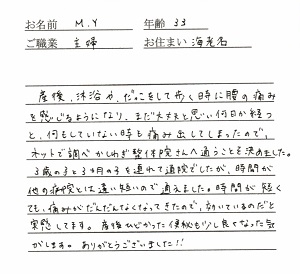 お名前 M.Y 年齢 33
ご職業 主婦 お住まい 海老名
産後、沐浴や、だっこをして歩く時に腰の痛み
を感じるようになり、まだ大丈夫と思い何日か経つ
と、何もしていない時も痛み出してしまったので、
ネットで調べかしわぎ整体院さんへ通うことを決めました。
3歳の子と3ヶ月の子を連れて通院でしたが、時間が
他の病院とは違い短いので通えました。時間が短く
ても、痛みがだんだんなくなってきたので、効いているのだと
実感してます。産後ひどかった便秘も少し良くなった気
がします。ありがとうございました!!